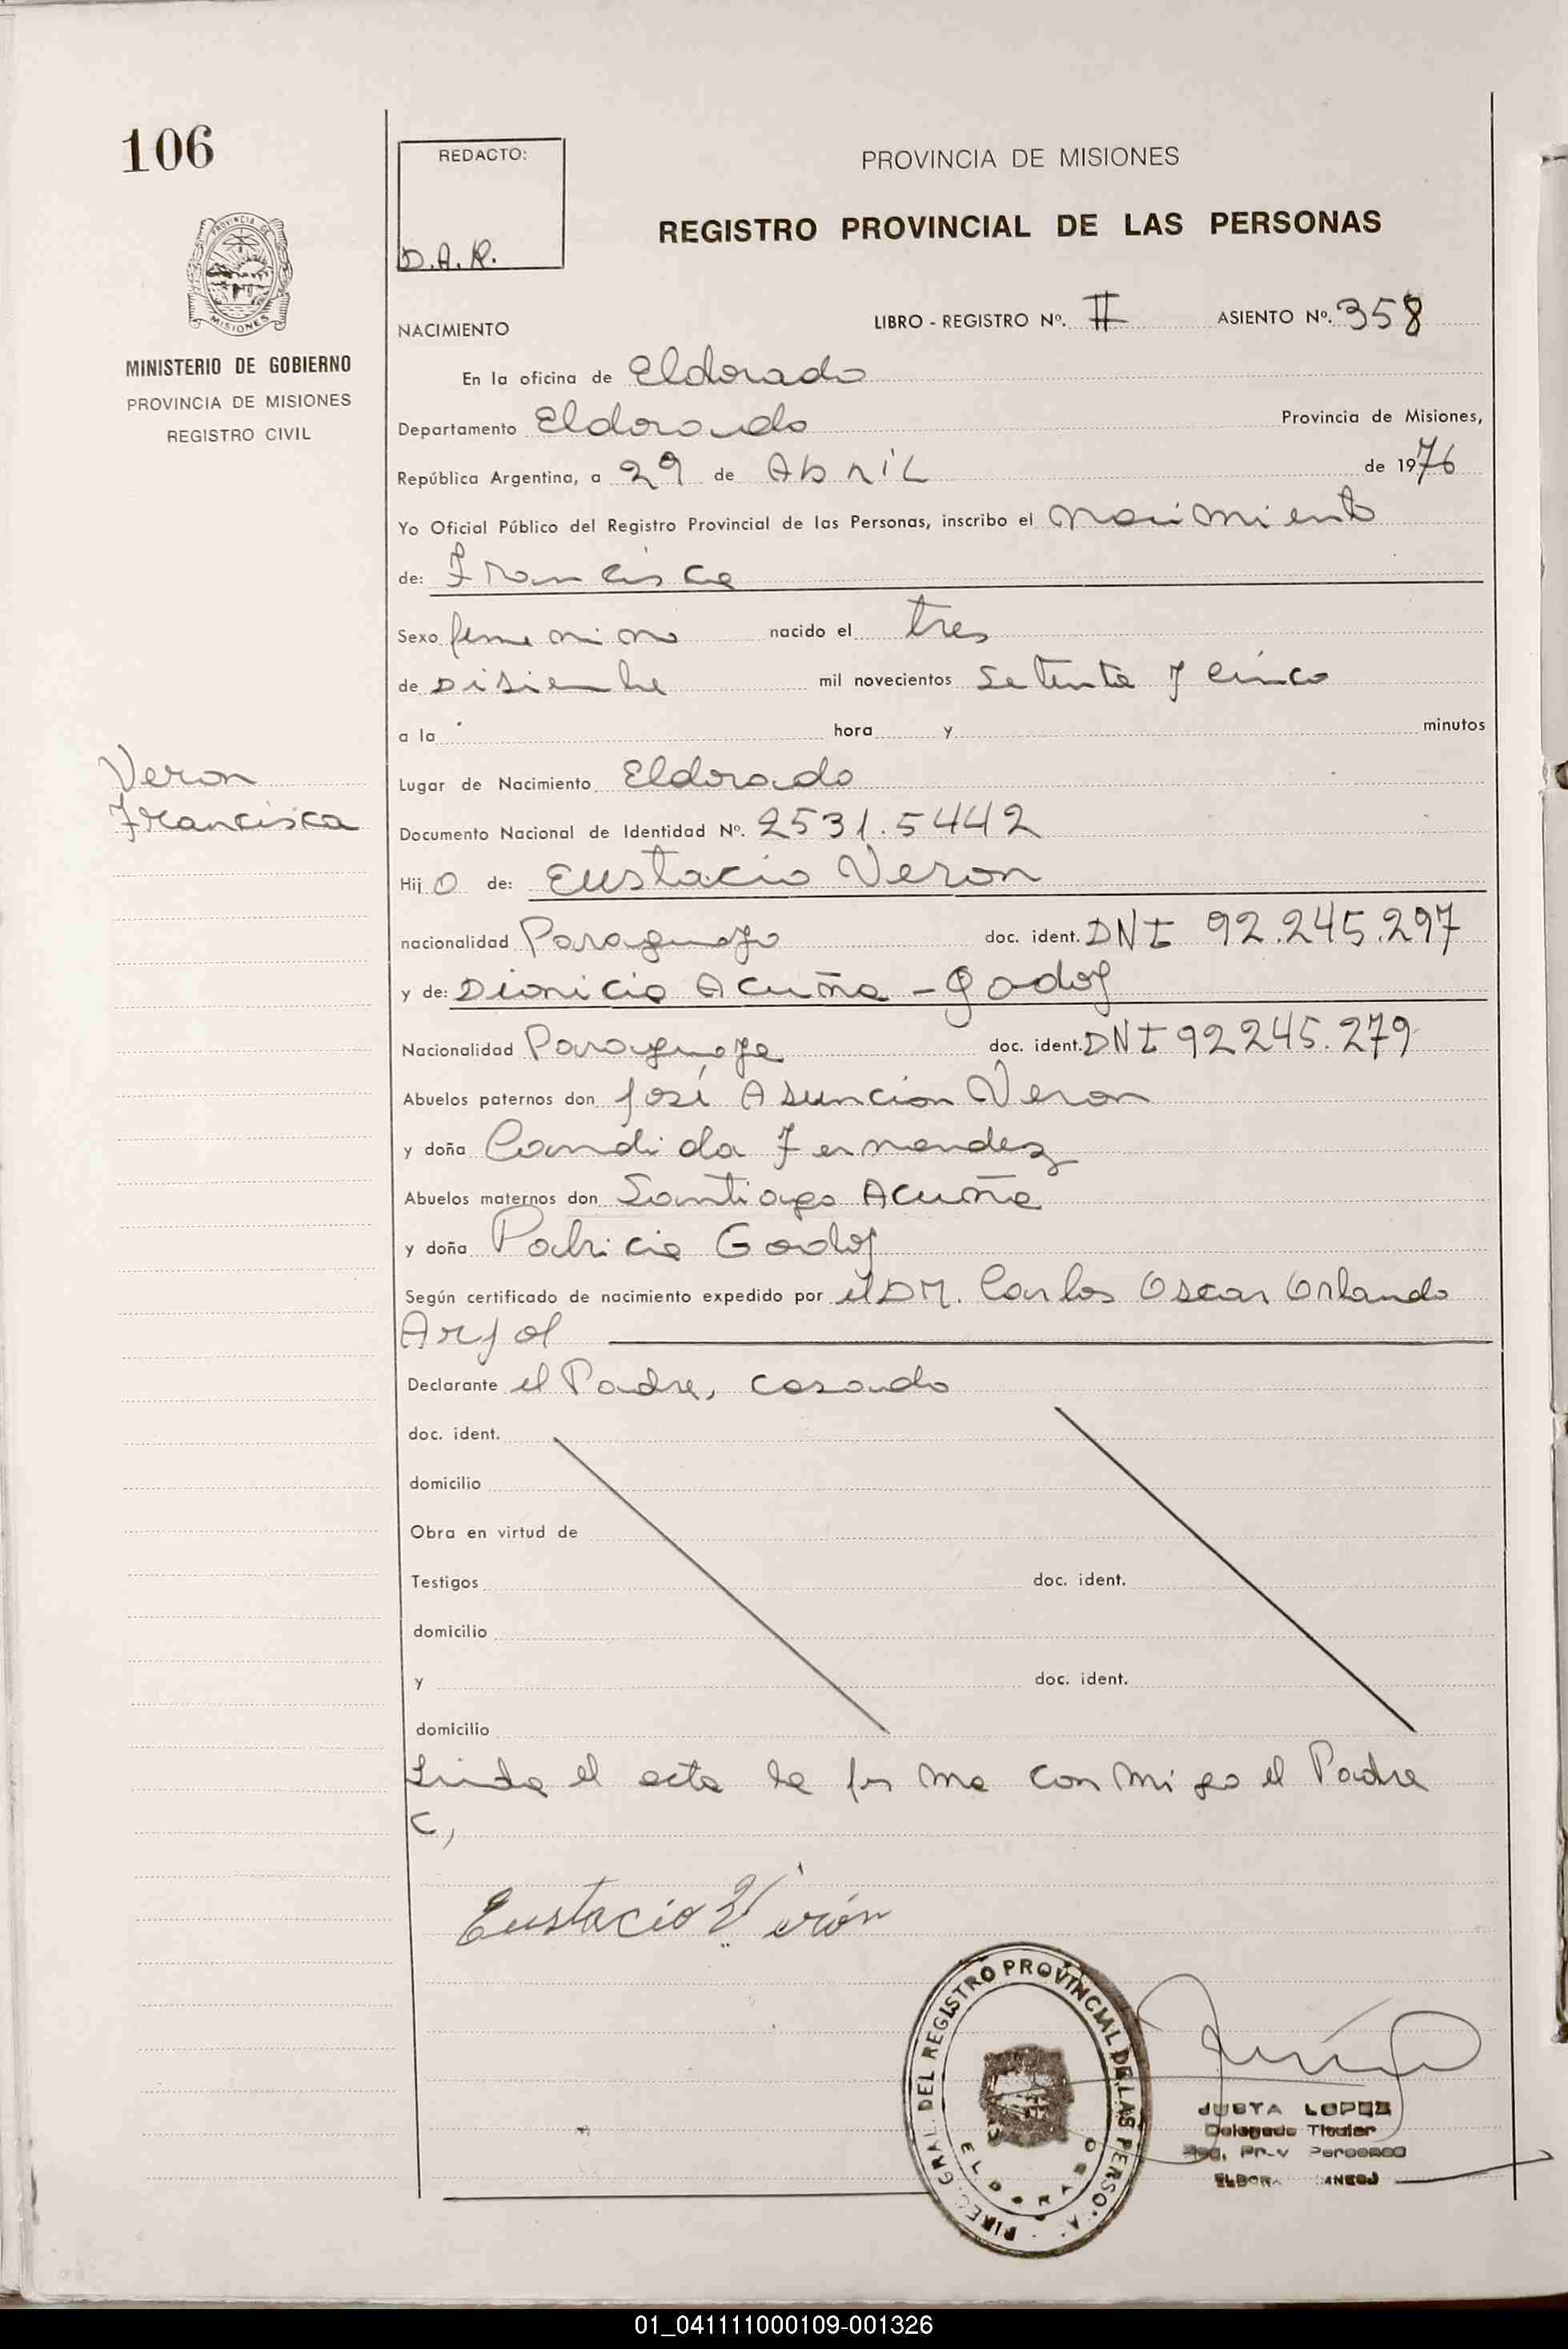 106
REDACTO:
D.A.R.
PROVINCIA DE MISIONES
REGISTRO PROVINCIAL DE LAS PERSONAS
PROVINCIA DE
MISIONES
MINISTERIO DE GOBIERNO
PROVINCIA DE MISIONES
REGISTRO CIVIL
NACIMIENTO
LIBRO - REGISTRO Nº. II ASIENTO Nº. 358
En la oficina de Eldorado
Departamento Eldorado Provincia de Misiones,
República Argentina, a 29 de Abril de 1976
Yo Oficial Público del Registro Provincial de las Personas, inscribo el nacimiento
de: Francisca
Sexo femenino nacido el tres
de Disiembre mil novecientos setenta y cinco
a la hora y minutos
Veron
Francisca
Lugar de Nacimiento Eldorado
Documento Nacional de Identidad Nº. 2531.5442
Hijo de: Eustacio Veron
nacionalidad Paraguayo doc. ident. DNI 92.245.297
y de: Dionicia Acuña - Godoy
Nacionalidad Paraguaya doc. ident. DNI 92245.279
Abuelos paternos don José Asuncion Veron
y doña Candida Fernandez
Abuelos maternos don Santiago Acuña
y doña Patricia Godoy
Según certificado de nacimiento expedido por el DR. Carlos Oscar Orlando
Arjol
Declarante el Padre, casado
doc. ident.
domicilio
Obra en virtud de
Testigos doc. ident.
domicilio
y doc. ident.
domicilio
Leida el acta la firma conmigo el Padre
C,
Eustacio Verón
DIREC. GRAL. DEL REGISTRO PROVINCIAL DE LAS PERSONA
ELDORADO
JUSTA LOPEZ
Delegado Titular
Reg. Prov Personas
01_041111000109-001326